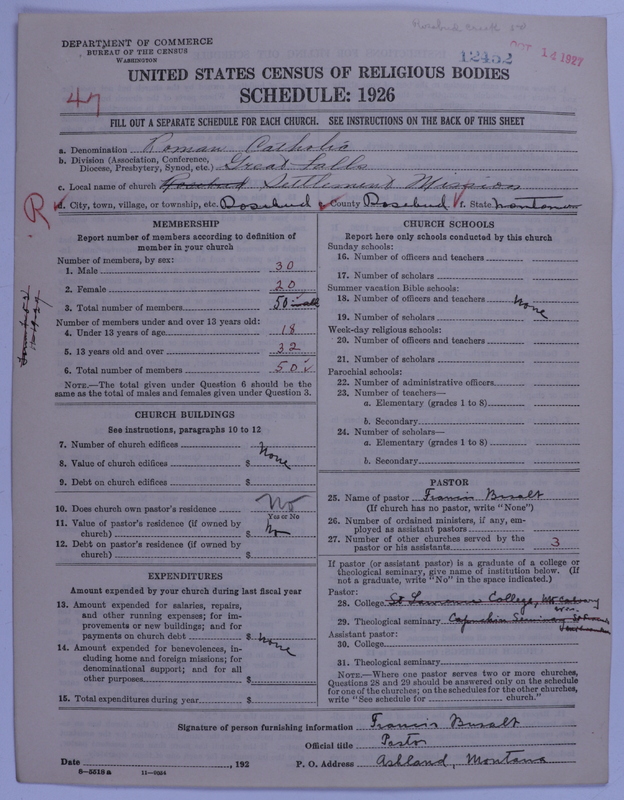 DEPARTMENT OF COMMERCE
BUREAU OF THE CENSUS
WASHINGTON
12452
OCT 14 1927
UNITED STATES CENSUS OF RELIGIOUS BODIES
SCHEDULE: 1926
47
FILL OUT A SEPARATE SCHEDULE FOR EACH CHURCH. SEE INSTRUCTIONS ON THE BACK OF THIS SHEET
a. Denomination Roman Catholic
b. Division (Association, Conference, Diocese, Presbytery, Synod, etc.) Great Falls
c. Local name of church Rosebud Settlement Mission
R
d. City, town, village, or township, etc. Rosebud e. County Rosebud f. State Montana
MEMBERSHIP
Report number of members according to definition of member in your church
Number of members, by sex:
1. Male 30
2. Female 20
3. Total number of members 50 in all
Number of members under and over 13 years old:
4. Under 13 years of age 18
5. 13 years old and over 32
6. Total number of members 50
NOTE.—The total given under Question 6 should be the same as the total of males and females given under Question 3.
CHURCH BUILDINGS
See instructions, paragraphs 10 to 12
7. Number of church edifices
8. Value of church edifices $ None
9. Debt on church edifices $
10. Does church own pastor's residence No
Yes or No
11. Value of pastor's residence (if owned by church) $ No
12. Debt on pastor's residence (if owned by church) $
EXPENDITURES
Amount expended by your church during last fiscal year
13. Amount expended for salaries, repairs, and other running expenses; for improvements or new buildings; and for payments on church debt $ None
14. Amount expended for benevolences, including home and foreign missions; for denominational support; and for all other purposes $
15. Total expenditures during year $
CHURCH SCHOOLS
Report here only schools conducted by this church
Sunday schools:
16. Number of officers and teachers
17. Number of scholars
Summer vacation Bible schools:
18. Number of officers and teachers None
19. Number of scholars
Week-day religious schools:
20. Number of officers and teachers
21. Number of scholars
Parochial schools:
22. Number of administrative officers
23. Number of teachers—
a. Elementary (grades 1 to 8)
b. Secondary
24. Number of scholars—
a. Elementary (grades 1 to 8)
b. Secondary
PASTOR
25. Name of pastor Francis Busalt
(If church has no pastor, write "None")
26. Number of ordained ministers, if any, employed as assistant pastors
27. Number of other churches served by the pastor or his assistants 3
If pastor (or assistant pastor) is a graduate of a college or theological seminary, give name of institution below. (If not a graduate, write "No" in the space indicated.)
Pastor:
28. College St Lawrence College, Mt Calvary Wis.
29. Theological seminary Capuchin Seminary
Assistant pastor:
30. College
31. Theological seminary
NOTE.—Where one pastor serves two or more churches, Questions 28 and 29 should be answered only on the schedule for one of the churches; on the schedules for the other churches, write "See schedule for church."
Signature of person furnishing information Francis Busalt
Official title Pastor
Date , 192 P. O. Address Ashland, Montana
8—5518 a 11—9034